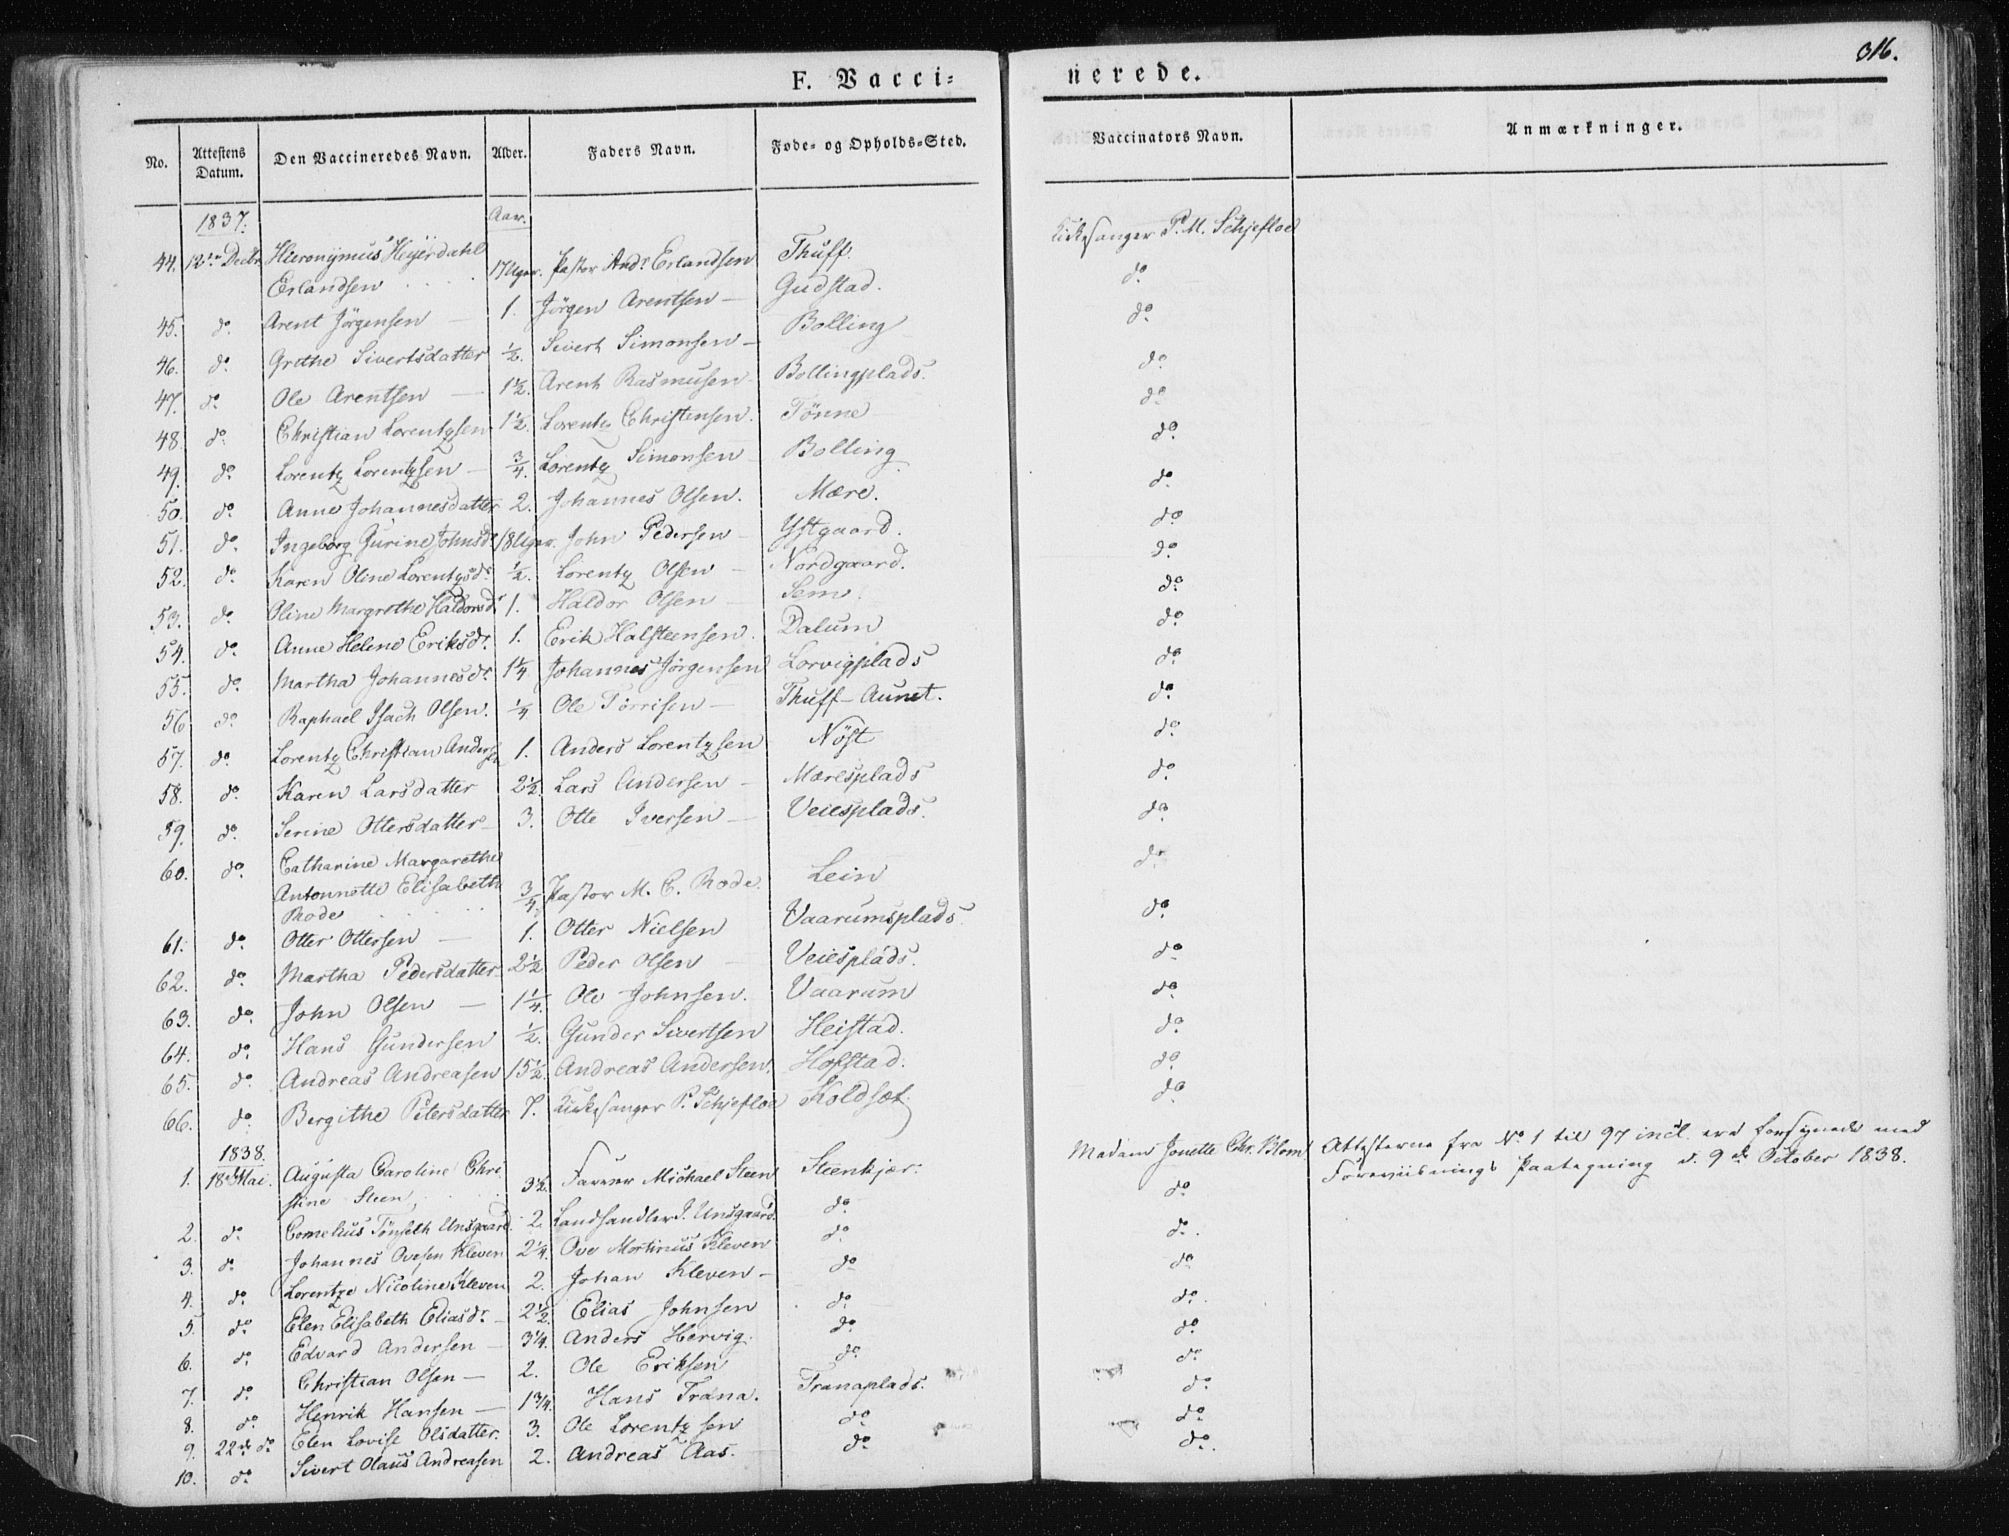 316.
F. Vacci= nerede.
No. Attestens Datum. Den Vaccineredes Navn. Alder. Faders Navn. Føde= og Opholds=Sted. Vaccinators Navn. Anmærkninger.
1837. Aar.
44. 12te Decbr Hieronymus Heyerdahl Erlandsen 17 Uger. Pastor Andr Erlandsen Thuff. Kirkesanger P. M. Schjefloe
45. do. Arent Jörgensen — 1. Jörgen Arentsen — Gudstad. do.
46. do. Grethe Sivertsdatter ½. Sivert Simonsen — Bolling do.
47. do. Ole Arentsen — 1½. Arent Rasmusen Bollingplads. do.
48. do. Christian Lorentzsen 1½. Lorentz Christensen. Tönne do.
49. do. Lorentz Lorentzsen — ¾. Lorentz Simonsen Bolling do.
50. do. Anne Johannesdatter 2. Johannes Olsen. Mære. do.
51. do. Ingeborg Gurine Johnsdr 18 Uger. John Pedersen — Ystgaard. do.
52. do. Karen Oline Lorentzsdr. ½. Lorentz Olsen — Nordgaard. do.
53. do. Oline Margrethe Haldorsdr 1. Haldor Olsen Sem. do.
54. do. Anne Helene Eriksdr. 1. Erik Halsteensen. Dalum do.
55. do. Martha Johannesdr. 1¼ Johannes Jörgensen Lorvigplads do.
56 do. Raphael Isach Olsen. ¼ Ole Törrisen — Thuff-Aunet. do.
57. do. Lorentz Christian Andersen 1. Anders Lorentzsen Nöst do.
58. do. Karen Larsdatter 2½. Lars Andersen — Mæresplads do.
59. do. Serine Ottersdatter — 3. Otte Iversen — Veiesplads. do.
60. do. Catharine Margarethe
Antonnette Elisabeth
Rode ¾. Pastor M. C. Rode. Lein do.
61. do. Otter Ottersen — 1. Otter Nielsen Vaarumsplads. do.
62. do. Martha Pedersdatter 2½ Peder Olsen — Veiesplads. do.
63. do. John Olsen — 1¼. Ole Johnsen. Vaarum do.
64. do. Hans Gundersen ½. Gunder Sivertsen Heistad. do.
65. do. Andreas Andreasen 15½. Andreas Andersen. Hofstad. do.
66. do. Bergithe Petersdatter 7. Kirkesanger P. Schjefloe Koldset. do.
1838.
1. 18de Mai. Augusta Caroline Chri
stine Steen 3½. Farver Michael Steen Steenkjær: Madam Jonette Chr. Blom Attesterne fra No. 1 til 97 incl. ere forsynede med
Foreviisnings Paategning d. 9de October 1838.
2. do. Cornelius Tönseth Unsgaard. 2. Landhandler J. Unsgaard. do. do.
3. do. Johannes Ovesen Kleven 2¼. Ove Mortinus Kleven do. do.
4. do. Lorentze Nicoline Kleven 2. Johan Kleven — do do
5. do. Elen Elisabeth Eliasdr. — 2½. Elias Johnsen do. do.
6. do. Edvard Andersen — 3¼. Anders Hervig. do. do.
7. do. Christian Olsen — 2. Ole Eriksen do. do.
8. do. Henrik Hansen — 1¾. Hans Trana. Tranaplads. do.
9. 22de do Elen Lovise Olsdatter. 3. Ole Lorentzsen do do.
10. do. Sivert Olaus Andreasen 2. Andreas Aas. do. do.